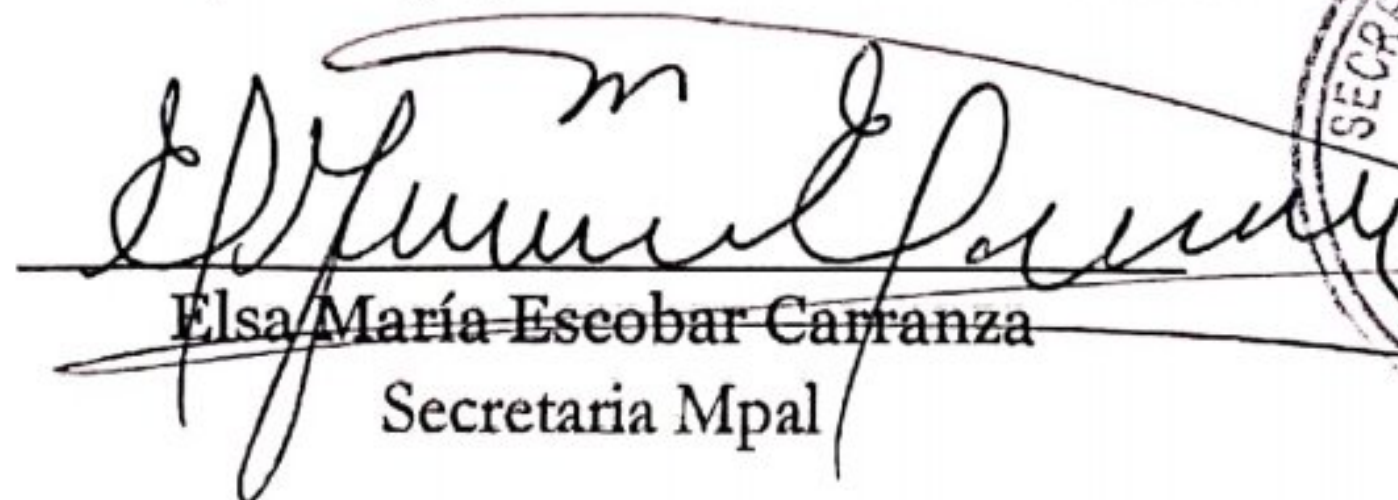 SECR
Elsa María Escobar Carranza
Secretaria Mpal